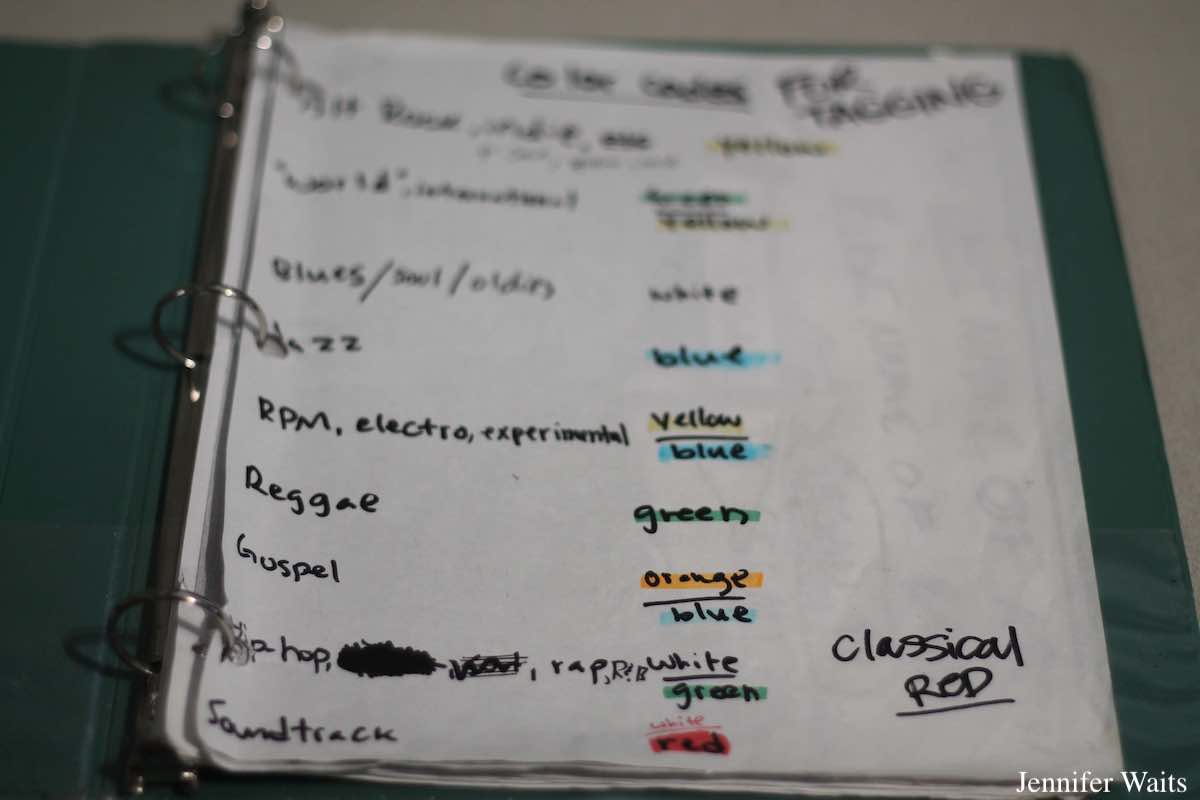 Color Codes FOR TAGGING
Alt Rock, indie, yellow
"world", international green
yellow
Blues/soul/oldies white
Jazz blue
RPM, electro, experimental yellow
blue
Reggae green
Gospel orange
blue
Hip-hop, rap, R&B white
green
Classical
RED
Soundtrack white
red
Jennifer Waits